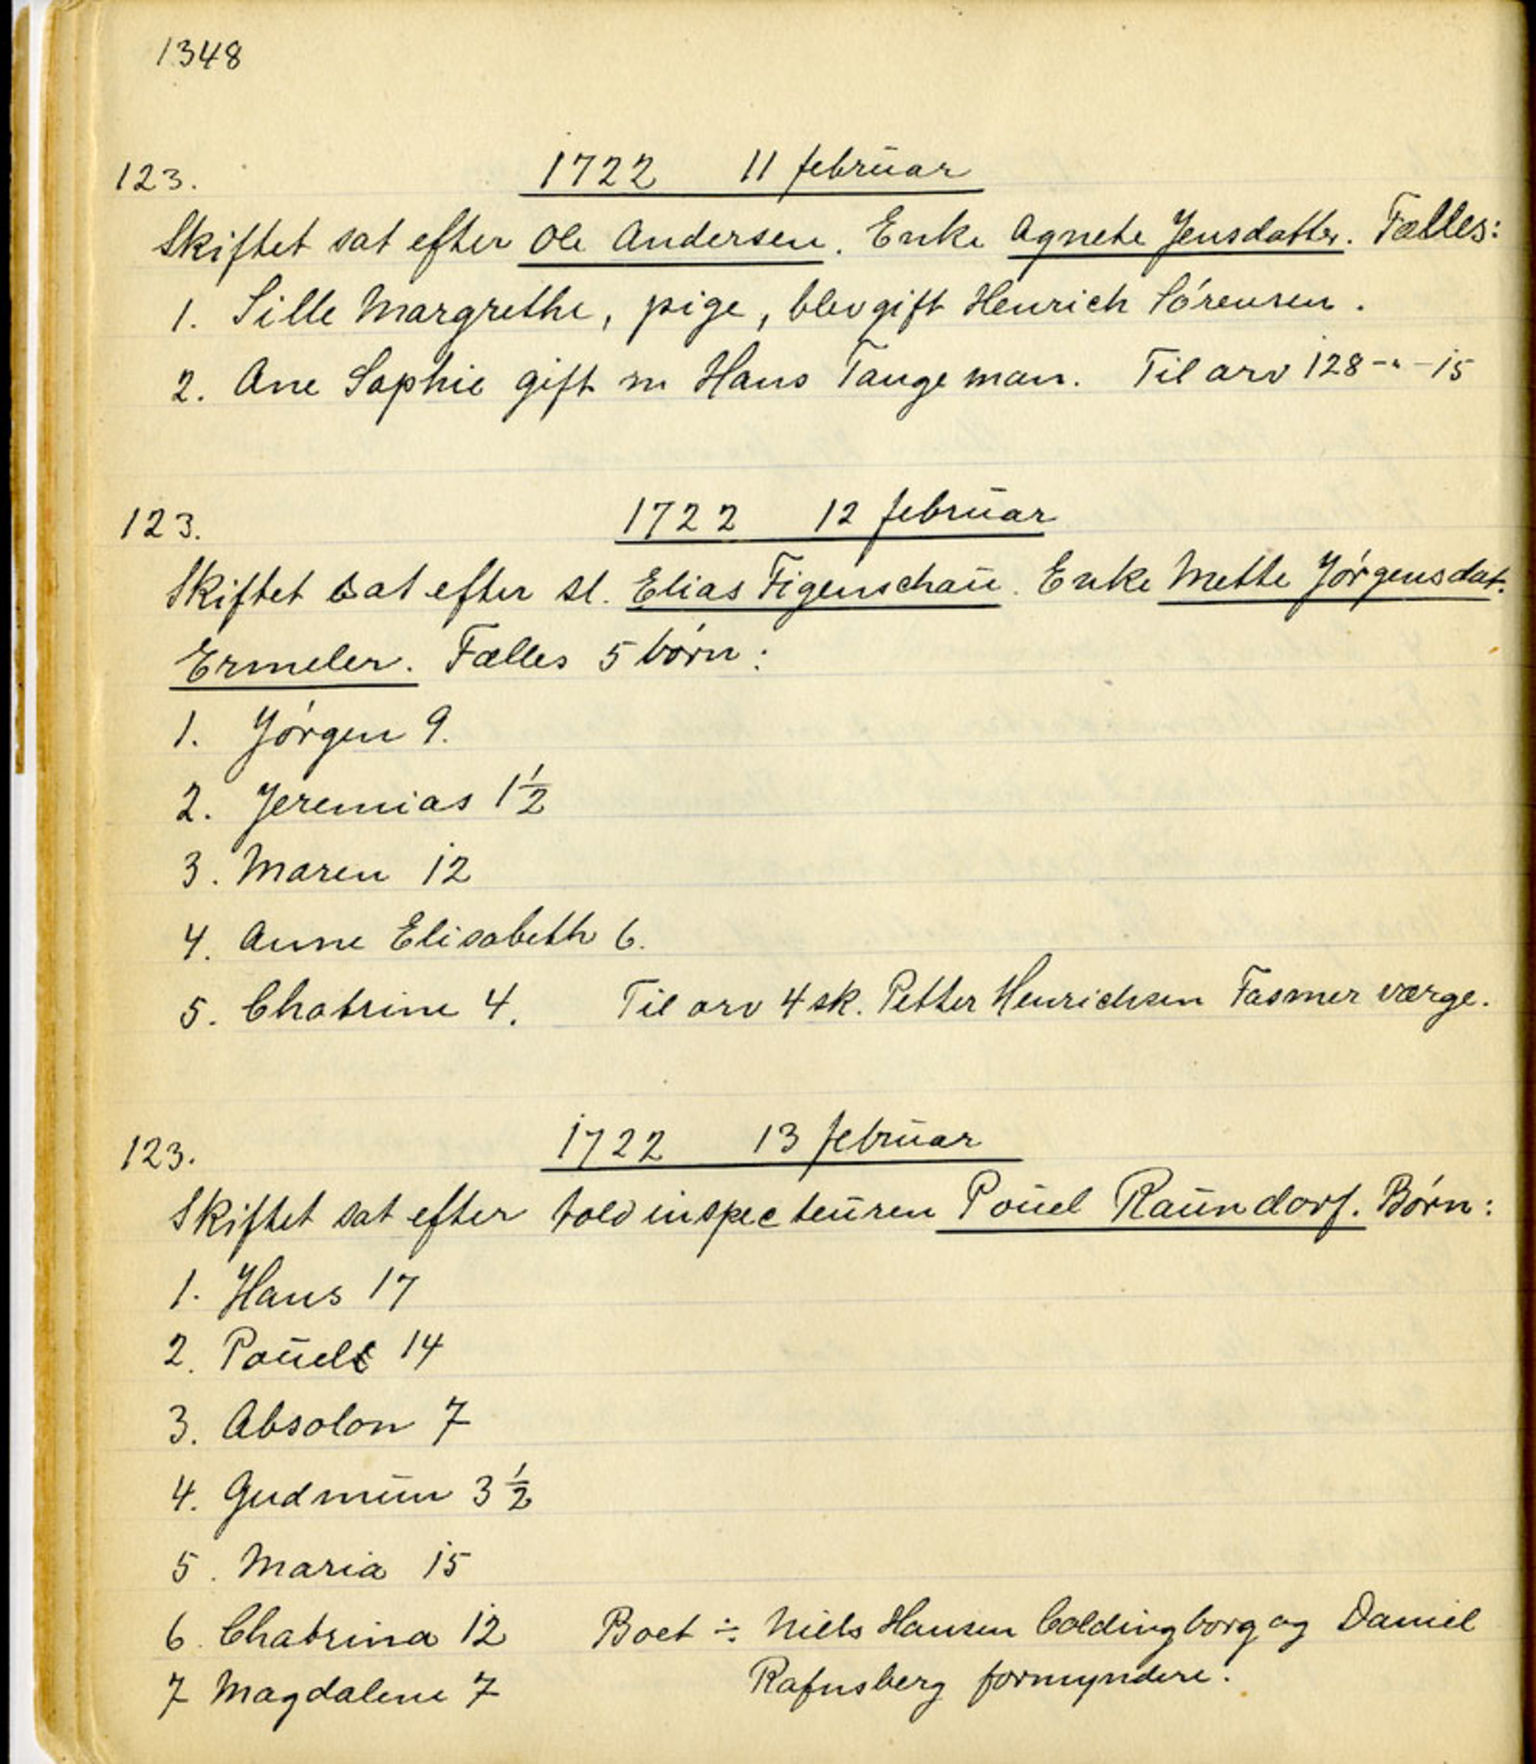 1348
123. 1722 11 februar
Skiftet sat efter Ole Andersen. Enke Agnete Jensdatter. Fælles:
1. Sille Margrethe, pige, blev gift Henrich Sørensen.
2. Ane Sophie gift m Hans Tangeman. Til arv 128-"-15
123. 1722 12 februar
Skiftet sat efter sl. Elias Figenschau. Enke Mette Jørgensdat.
Ermeler. Fælles 5 børn:
1. Jørgen 9.
2. Jeremias 1½
3. Maren 12
4. Anne Elisabeth 6.
5. Chatrine 4. Til arv 4 sk. Petter Henrichsen Fasmer værge.
123. 1722 13 februar
Skiftet sat efter toldinspecteuren Pouel Raundorf. Børn:
1. Hans 17
2. Pouel 14
3. Absolon 7
4. Gudmun 3½
5. Maria 15
6. Chatrina 12 Boet ÷ Niels Hansen Coldingborg og Daniel
7 Magdalene 7 Rafnsberg formyndere.